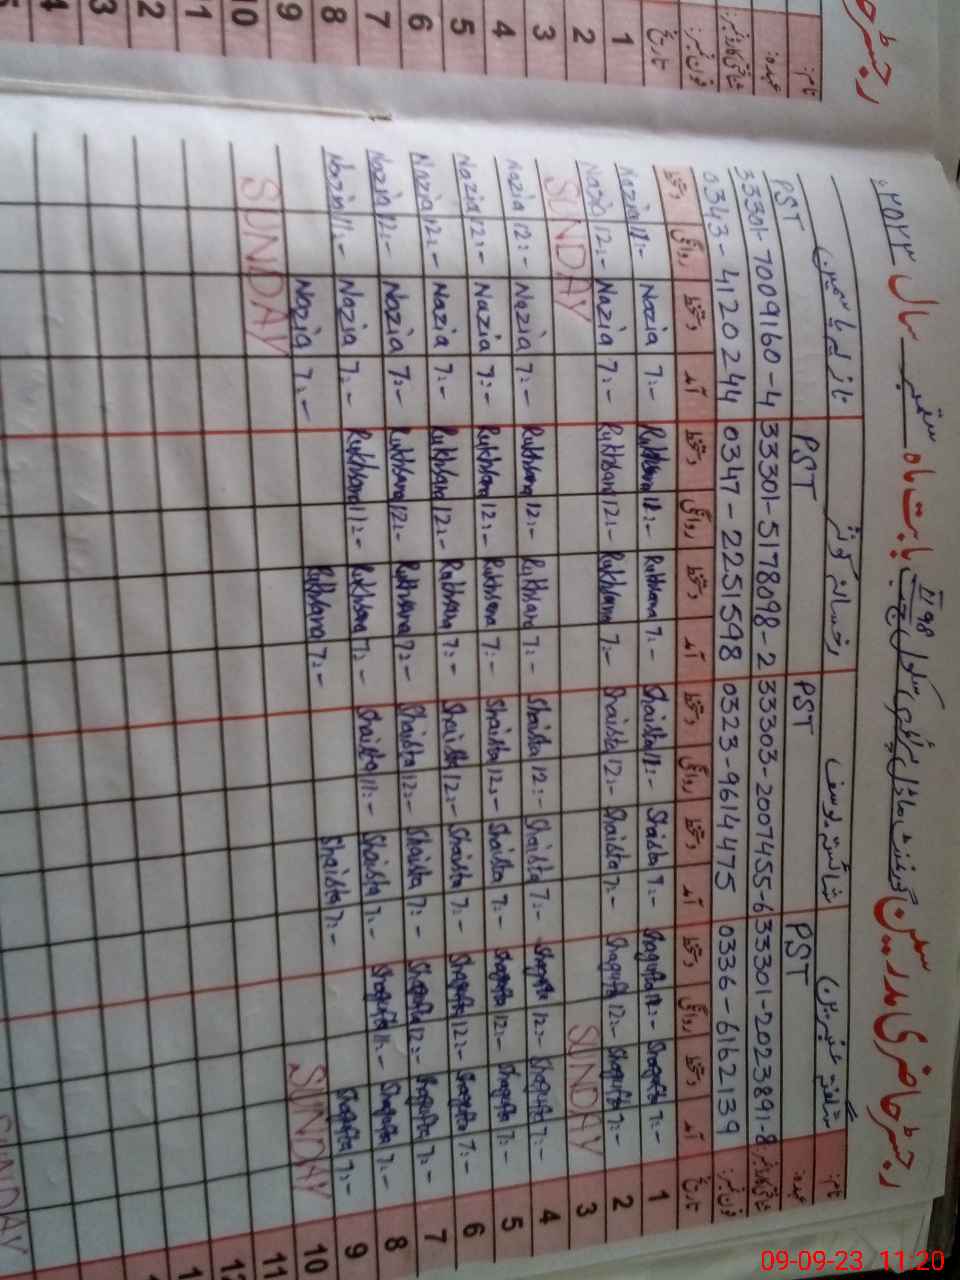 رجسٹر حاضری مدرسین گورنمنٹ ماڈل پرائمری سکول 98 II ج ب بابت ماہ ستمبر سال ۲۰۲۳ء
نام: شگفتہ شیریں شائستہ یوسف رخسانہ کوثر نازیہ یاسمین
عہدہ: PST PST PST PST
شناختی کارڈ نمبر: 33301-2023891-8 33303-2007455-6 33301-5178098-2 33301-7009160-4
فون نمبر: 0336-6162139 0323-9614475 0347-2251598 0343-4120244
تاریخ آمد دستخط روانگی دستخط آمد دستخط روانگی دستخط آمد دستخط روانگی دستخط آمد دستخط روانگی دستخط
Nazia 12:- Nazia 7:- Rukhsana 12:- Rukhsana 7:- Shaista 12:- Shaista 7:- Shagufta 12:- Shagufta 7:- 1
Nazia 12:- Nazia 7:- Rukhsana 12:- Rukhsana 7:- Shaista 12:- Shaista 7:- Shagufta 12:- Shagufta 7:- 2
SUNDAY SUNDAY 3
Nazia 12:- Nazia 7:- Rukhsana 12:- Rukhsana 7:- Shaista 12:- Shaista 7:- Shagufta 12:- Shagufta 7:- 4
Nazia 12:- Nazia 7:- Rukhsana 12:- Rukhsana 7:- Shaista 12:- Shaista 7:- Shagufta 12:- Shagufta 7:- 5
Nazia 12:- Nazia 7:- Rukhsana 12:- Rukhsana 7:- Shaista 12:- Shaista 7:- Shagufta 12:- Shagufta 7:- 6
Nazia 12:- Nazia 7:- Rukhsana 12:- Rukhsana 7:- Shaista 12:- Shaista 7:- Shagufta 12:- Shagufta 7:- 7
Nazia 11:- Nazia 7:- Rukhsana 11:- Rukhsana 7:- Shaista 11:- Shaista 7:- Shagufta 11:- Shagufta 7:- 8
Nazia 7:- Rukhsana 7:- Shaista 7:- Shagufta 7:- 9
SUNDAY SUNDAY 10
11
SUNDAY
نام:
عہدہ:
شناختی کارڈ نمبر:
فون نمبر:
تاریخ
1
2
3
4
5
6
7
8
9
10
11
12
13
09-09-23 11:20